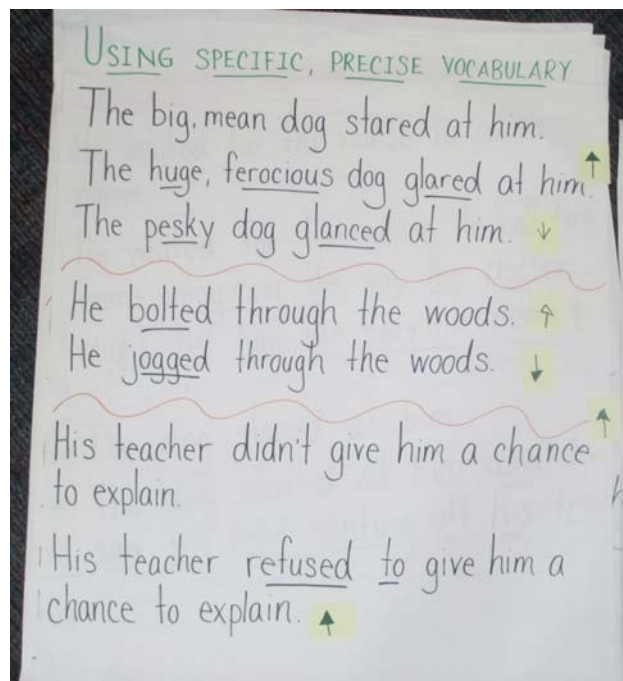 USING SPECIFIC, PRECISE VOCABULARY
The big, mean dog stared at him.
The huge, ferocious dog glared at him. ↑
The pesky dog glanced at him. ↓
He bolted through the woods. ↑
He jogged through the woods. ↓
His teacher didn't give him a chance ↑
to explain.
His teacher refused to give him a
chance to explain. ↑